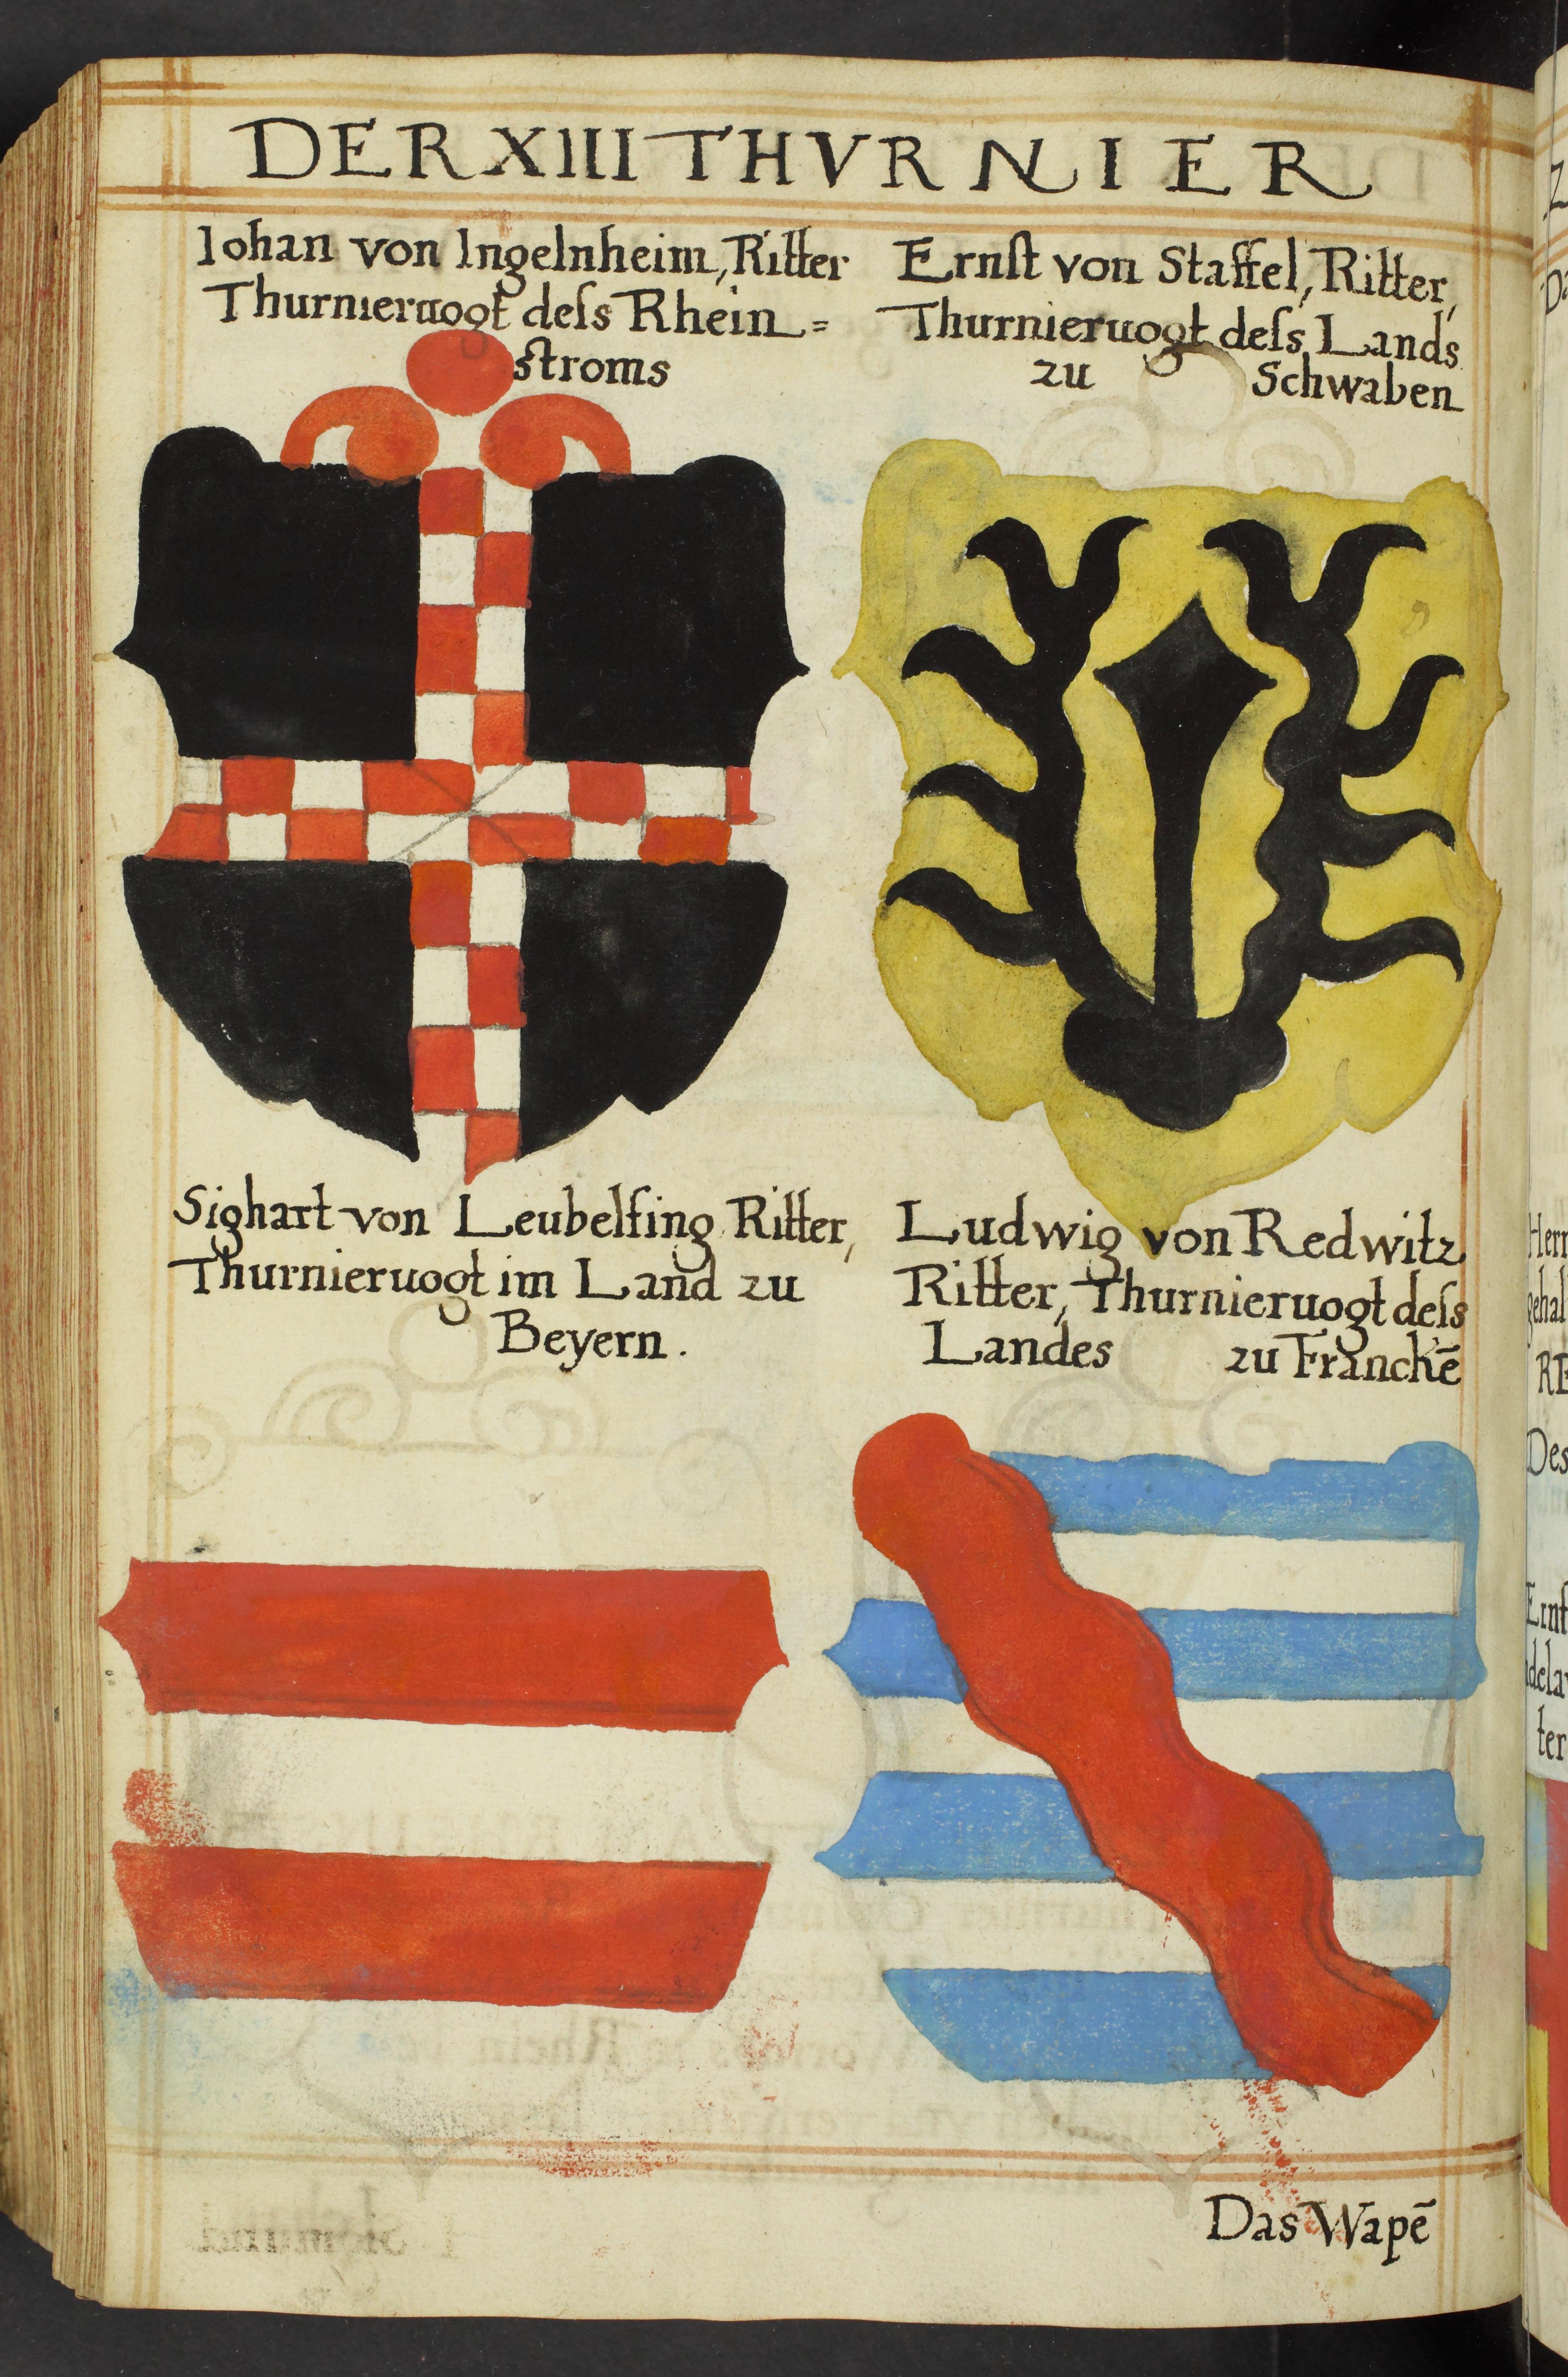 DER XIII THVRNIER
Iohan von Ingelnheim, Ritter
Thurnieruogt deſs Rhein=
ſtroms
Ernſt von Staffel, Ritter,
Thurnieruogt deſs Lands
zu Schwaben
Sighart von Leubelfing Ritter,
Thurnieruogt im Land zu
Beyern.
Ludwig von Redwitz
Ritter, Thurnieruogt deſs
Landes zu Franckē
Das Wapē